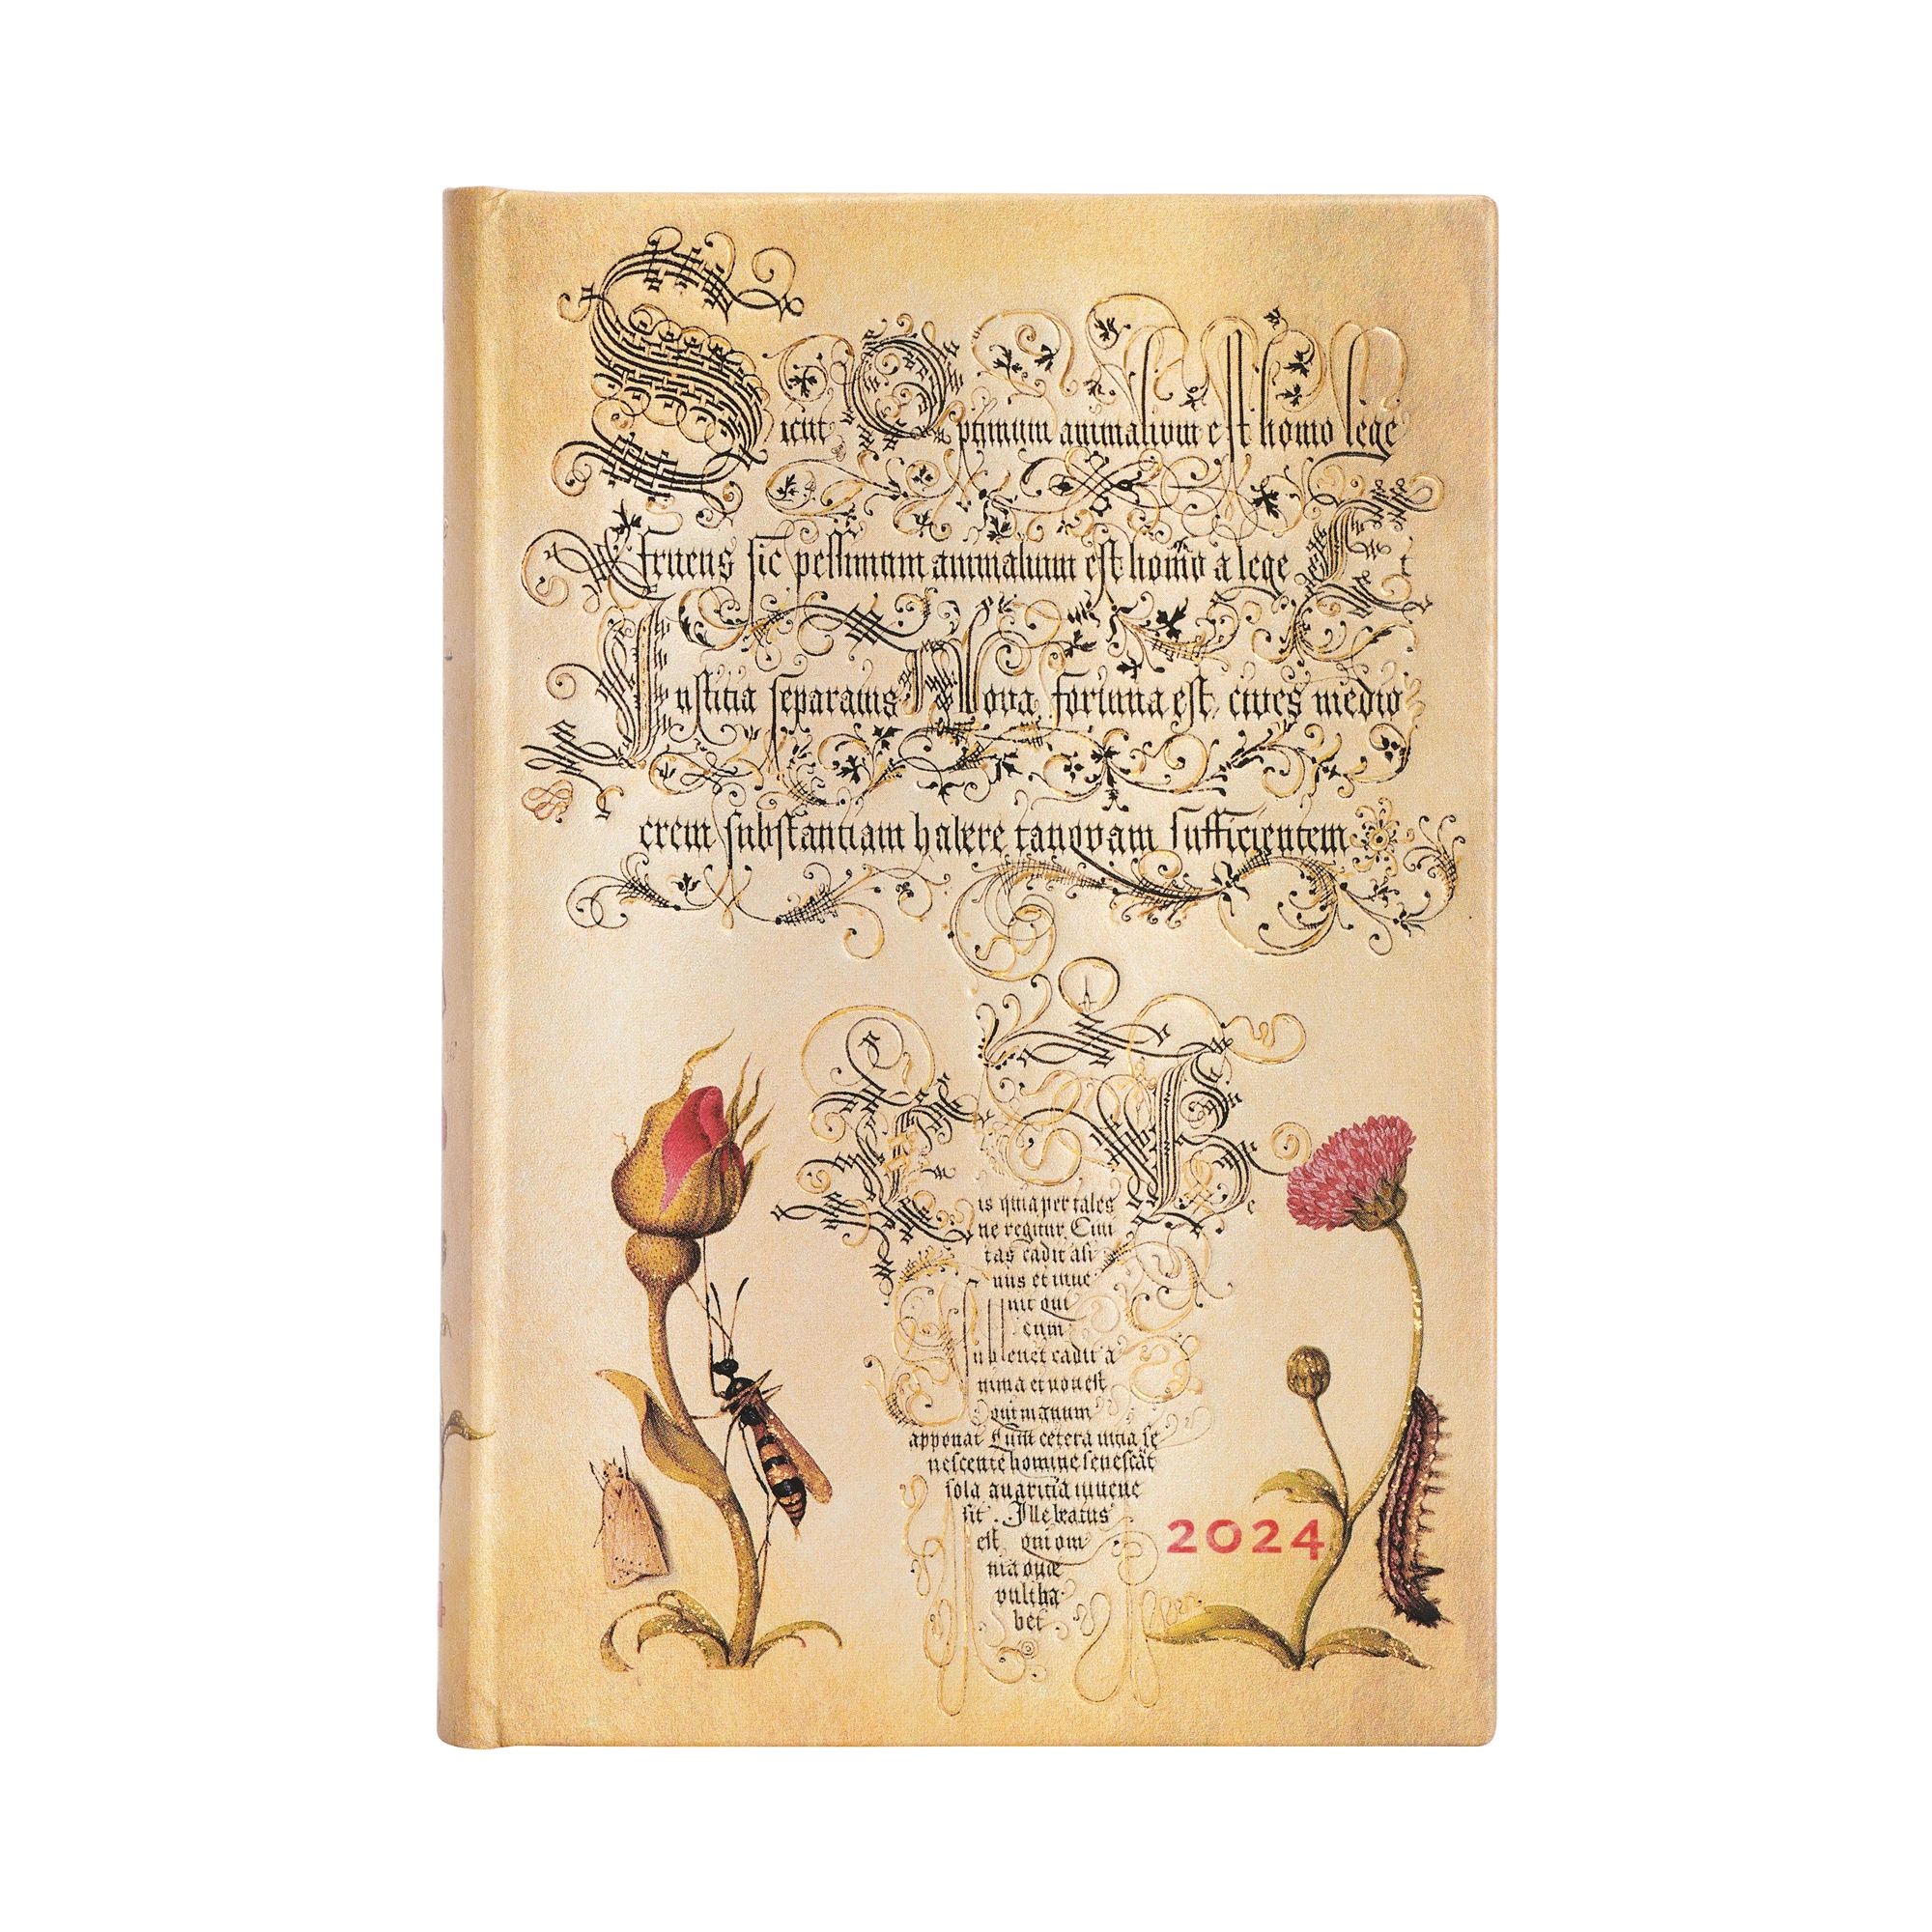 Sicut Optimum animalium est homo lege
fruens sic pessimum animalium est homo a lege Et
Iustitia separatus Nova fortuna est cives medio
crem substantiam habere tanquam sufficientem
is quia per tales Be
ne regitur Civi
tas cadit asi
nus et inve
nit qui
eum
sublevet cadit a
nima et non est
qui manum
apponat Cum cetera vitia se
nescente homine senescāt
sola avaritia iuvene
sit. Ille beatus
est qui om
nia quæ
vult ha
bet
2024